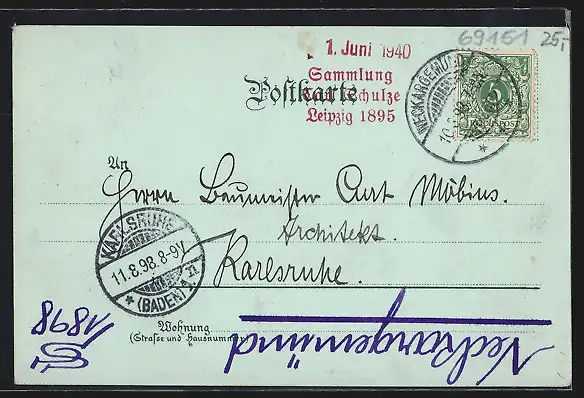 69151 25,-
1. Juni 1940
Sammlung
Karl Schulze
Leipzig 1895
Postkarte
NECKARGEMÜND
10. 8. 98
5
REICHSPOST
An
Herrn Baumeister Curt Möbius.
Architekt.
Karlsruhe.
KARLSRUHE
11.8.98.8-9V.
* (BADEN) 3. *
Wohnung
(Straße und Hausnummer)
Neckargemünd
1898